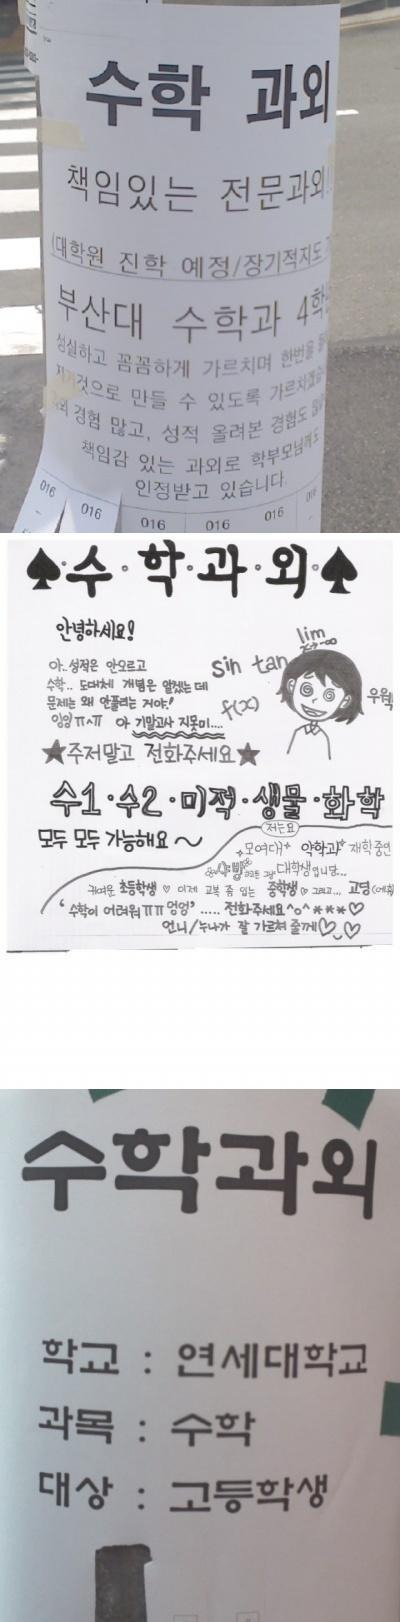 수학 과외
책임있는 전문과외!!
(대학원 진학 예정/장기적지도
부산대 수학과 4학
성실하고 꼼꼼하게 가르치며 한번을
것으로 만들 수 있도록 가르치겠습
경험 많고, 성적 올려본 경험도
책임감 있는 과외로 학부모님께도
인정받고 있습니다.
016 016 016 016 016 016
♠·수·학·과·외·♠
안녕하세요!
lim
sin tan
f(x)
우웩
아..성적은 안오르고
수학.. 도대체 개념은 알겠는데
문제는 왜 안풀리는 거야!
잉잉 ㅠㅅㅠ 아 기말고사 지못미....
★주저말고 전화주세요★
수1·수2·미적·생물·화학
모두 모두 가능해요~
저는요
모여대 약학과 재학중인
대학생입니당...
귀여운 초등학생 ♡ 이제 교복 좀 입는 중학생 ♡ 그리고... 고딩
'수학이 어려워ㅠㅠ 엉엉' ..... 전화주세요^o^***♡
언니/누나가 잘 가르쳐 줄께♡♡♡
수학과외
학교 : 연세대학교
과목 : 수학
대상 : 고등학생